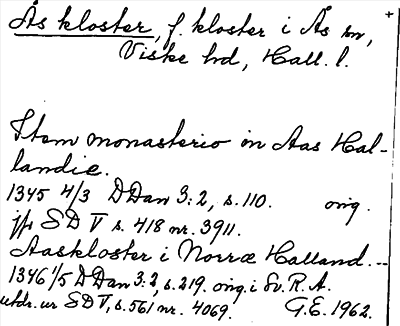 Ås kloster, f. kloster i Ås sn,
Viske hd, Hall. l.
Item monasterio in Aas Hal-
landie.
1345 4/3 DDan 3:2, s. 110. orig.
jfr SD V s. 418 nr. 3911.
Aaskloster i Norræ Halland.--
1346 1/5 DDan 3:2, s. 219. orig. i Sv. R.A.
utdr. ur SD V, s. 561 nr. 4069. G.E. 1962.